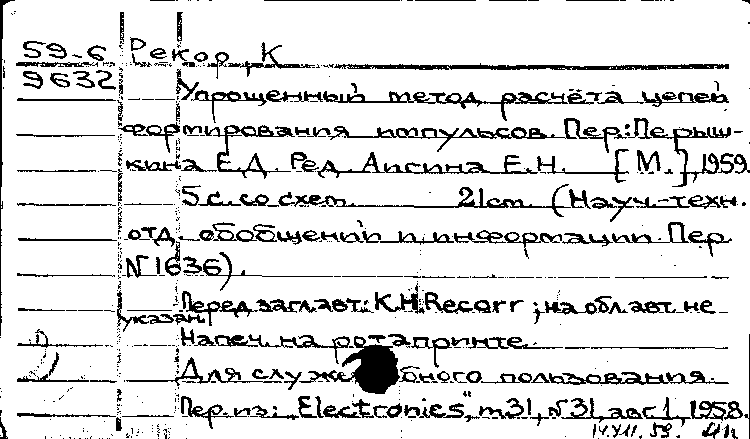 59-6 Рекор, К
9632
Упрощенный метод расчёта цепей
формирования импульсов. Пер.: Перыш-
кина Е.Д. Ред. Аисина Е.Н. [М.], 1959.
5 с. со схем. 21 cm. (Науч.-техн.
отд. обобщений и информации. Пер.
№ 1636).
Перед загл. авт.: K.H. Recorr; на обл. авт. не
указан.
Напеч. на ротапринте.
Для служебного пользования.
Пер. из: "Electronics", т 31, № 31, авг 1, 1958.